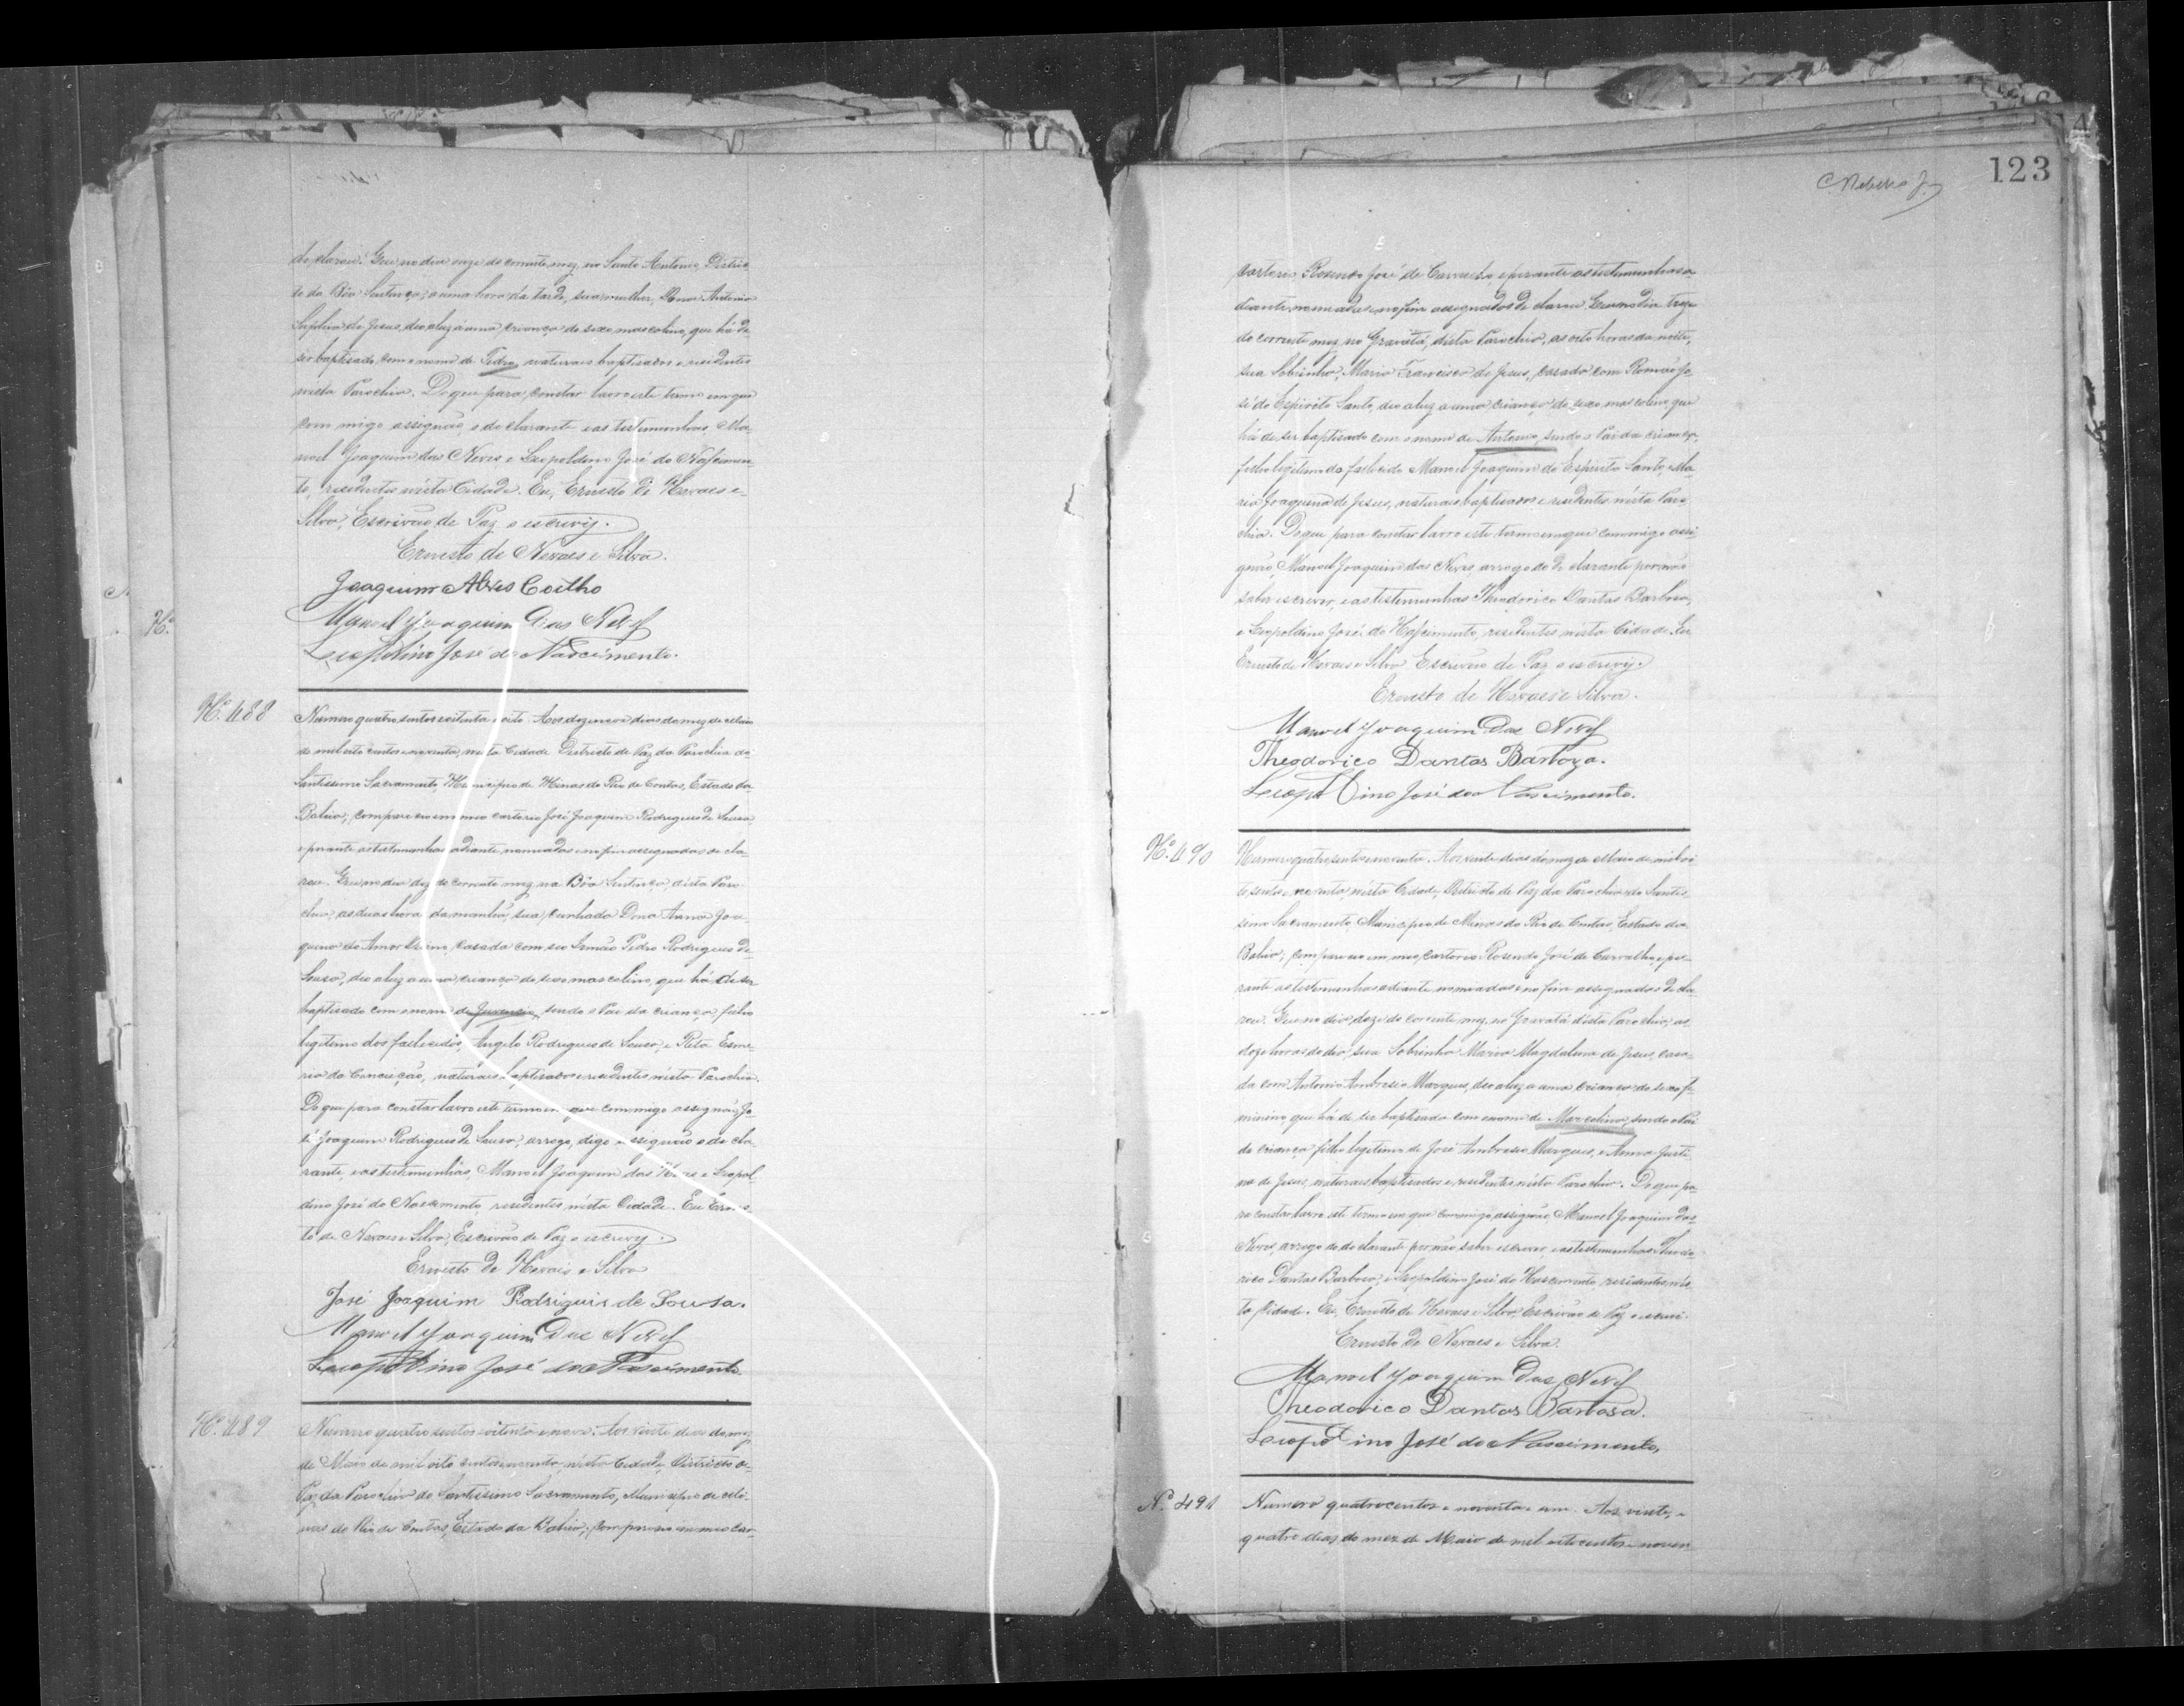 declarou: Que, no dia onze do corrente mez, no Santo Antonio, Distric-
to da Bôa Sentença, a uma hora da tarde, sua mulher, Dona Antonia
de Jesus, deo a luz á uma criança do sexo mascolino, que há de
ser baptisado com o nome de Pedro, naturais baptisados e residentes
nesta Parochia. Do que para constar lavro este termo em que
commigo assignão, o declarante e as testemunhas, Ma-
noel Joaquim das Neves, e Leopoldino José do Nascimen-
to, residentes nésta Cidade. Eu, Ernesto de Novaes e
Silva, Escrivão de Paz o escrevy.
Ernesto de Novaes e Silva.
Joaquim Alves Coelho
Manoel Joaquim das Neves
Leopoldino José do Nascimento.
Nº 488
Numero quatro sentos e oitenta e oito. Aos dezenove dias do mez de Maio
de mil oito centos e noventa, nesta Cidade Districto de Paz da Parochia do
Santissimo Sacramento, Municipio de Minas do Rio de Contas, Estado da
Bahia, compareceo em meo cartorio José Joaquim Rodrigues de Sousa,
e perante as testemunhas adiante nomeadas e no fim assegnadas de cla-
rou: Que, no dia dez do corrente mez, na Bôa Sentença, desta Paro-
chia, as duas hora da manhã, sua cunhada Dona Anna Joa-
quina do Amor Divino, casada com seu Irmão Pedro Rodrigues de
Sousa, deo a luz a uma criança do sexo mascolino, que há de ser
baptisado com o nome de Juvencio, sendo o Pai da criança filho
legitimo dos fallecidos, Angelo Rodrigues de Sousa, e Rita Esme-
ria da Conceição, naturais baptisados e residentes nésta Parochia.
Do que para constar lavro este termo em que commigo assegnão, Jo-
sé Joaquim Rodrigues de Sousa, arrogo, digo assignão o de cla-
rante, e as testemunhas, Manoel Joaquim das Neves e Leopol
dino José do Nascimento, residentes nésta Cidade. Eu Ernes-
to de Novaes e Silva, Escrivão de Paz o escrevy.
Ernesto de Novais e Silva
José Joaquim Rodriguis de Sousa.
Manoel Joaquim das Neves
Leopoldino José do Nascimento
Nº 489
Numero quatro sentos e oitenta e nove. Aos vinte dias do mez
de Maio de mil oito centos e noventa, nesta Cidade, Districto de
Paz da Parochia do Santissimo Sacramento, Municipio de Mi-
nas do Rio de Contas, Estado da Bahia, compareceo em meo car-
123
cartorio Rosendo José de Carvalho, e perante as testemunhas a
diante nomeadas e no fim assegnadas de clarou: Que no dia treze
do corrente mez, no Gravatá, desta Parochia, as oito horas da noite,
sua Sobrinha, Maria Francisca de Jesus, casada com Romão Jo
sé do Espirito Santo, deo a luz a uma criança do sexo mascolino, que
há de ser baptisado com o nome de Antonio, sendo o Pai da criança,
filho legitimo do fallecido Manoel Joaquim do Espirito Santo, e Ma-
ria Joaquina de Jesus, naturais, baptisados e residentes nésta Paro
chia. Do que para constar lavro este termo em que commigo assi
gnão, Manoel Joaquim das Neves, arrogo do de clarante por não
saber escrever, e as testemunhas Theodorico Dantas Barbosa,
e Leopoldino José do Nascimento, residentes nésta Cidade. Eu
Ernesto de Novaes e Silva Escrivão de Paz o escrevy.
Ernesto de Novaes e Silva.
Manoel Joaquim das Neves
Theodorico Dantas Barboza.
Leopoldino José do Nascimento.
Nº 490
Numero quatro sentos e noventa. Aos vinte dias do mez de Maio de mil oi
to sentos e noventa, nésta Cidade, Districto de Paz da Parochia do Santis-
simo Sacramento, Municipio de Minas do Rio de Contas, Estado da
Bahia, compareceo em meo cartorio Rosendo José de Carvalho, e pe-
rante as testemunhas adiante nomeadas e no fim assegnadas de cla-
rou: Que no dia doze do corrente mez, no Gravatá desta Parochia, as
doze horas do dia, sua Sobrinha Maria Magdalena de Jesus, casa-
da com Antonio Ambrosio Marques, deo a luz a uma criança do sexo fe-
minino, que há de ser baptisada com o nome de Marcolina, sendo o Pai
da criança filho legitimo de José Ambrosio Marques, e Anna Justi-
na de Jesus, naturais baptisados e residentes nésta Parochia. Do que pa-
ra constar lavro este termo em que commigo assignão, Manoel Joaquim das
Neves, arrogo do de clarante por não saber escrever, e as testemunhas Theodo-
rico Dantas Barbosa, e Leopoldino José do Nascimento, residentes nés-
ta Cidade. Eu, Ernesto de Novaes e Silva Escrivão de Paz o escrevi.
Ernesto de Novaes e Silva.
Manoel Joaquim das Neves
Theodorico Dantas Barbosa.
Leopoldino José do Nascimento,
Nº 491
Numero quatrocentos e noventa e um. Aos vinte, e
quatro dias do mez de Maio de mil oitocentos e noven